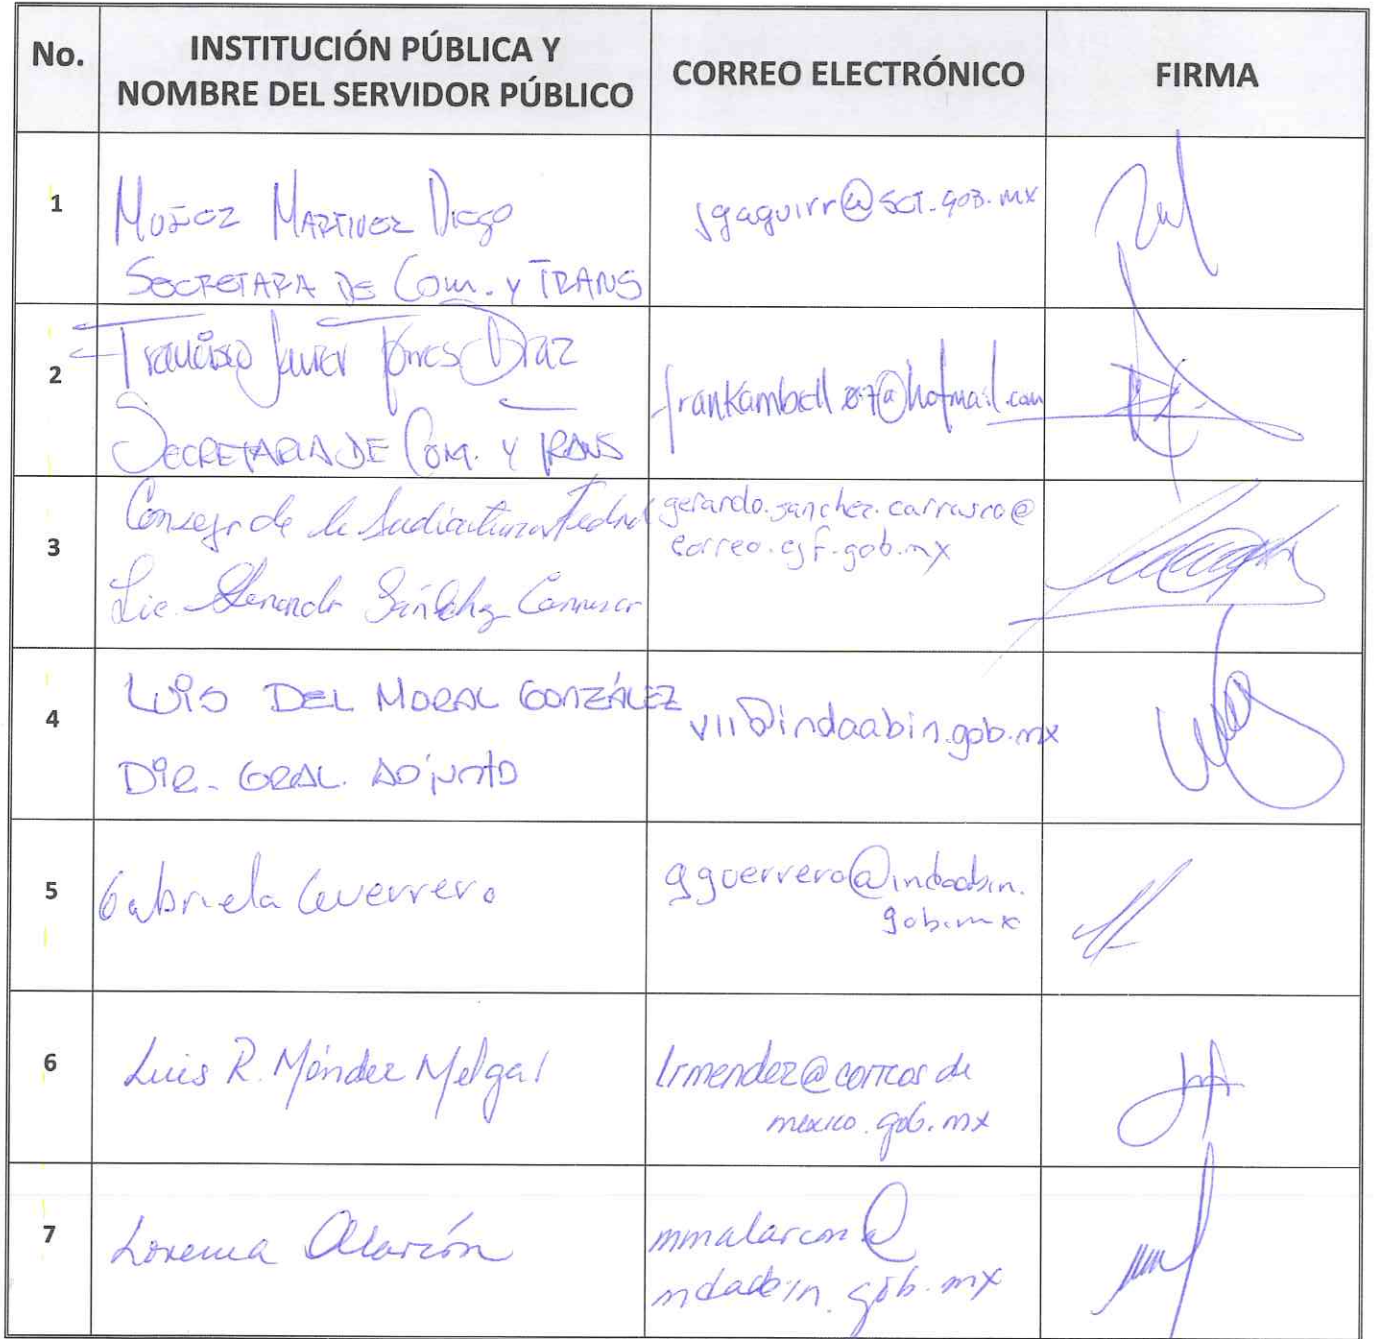 No.
INSTITUCIÓN PÚBLICA Y
NOMBRE DEL SERVIDOR PÚBLICO
CORREO ELECTRÓNICO
FIRMA
1
Muñoz Martinez Diego
Secretara de Com. y Trans
jgaguirr@sct.gob.mx
2
Francisco Javier Torres Diaz
Secretaria de Com. y Trans
frankambell87@hotmail.com
3
Consejo de la Judicatura Fedral
Lic. Gerardo Sánchez Carrasco
gerardo.sanchez.carrasco@
correo.cjf.gob.mx
4
Luis del Moral González
Dir. Gral. Adjunto
vii@indaabin.gob.mx
5
Gabriela Guerrero
gguerrero@indaabin.
gob.mx
6
Luis R. Méndez Melgar
lrmendez@correos de
mexico.gob.mx
7
Lorena Alarcón
mmalarcon@
indaabin.gob.mx